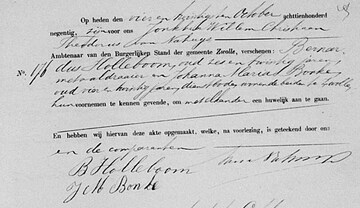 Op heden den vier en twintig sten October achttienhonderd
negentig, zijn voor ons Jonkheer Willem Christiaan
Theodorus van Nahuys
Ambtenaar van den Burgerlijken Stand der gemeente Zwolle, verschenen: Bernar-
No. 176 dus Holleboom, oud zes en twintig jaren,
metaaldraaier en Johanna Maria Bonke,
oud vier en twintig jaren, dienstbode, wonende beiden te Zwolle,
hun voornemen te kennen gevende, om met elkander een huwelijk aan te gaan.
En hebben wij hiervan deze akte opgemaakt, welke, na voorlezing, is geteekend door ons
en de comparanten
B Holleboom
J M Bonke